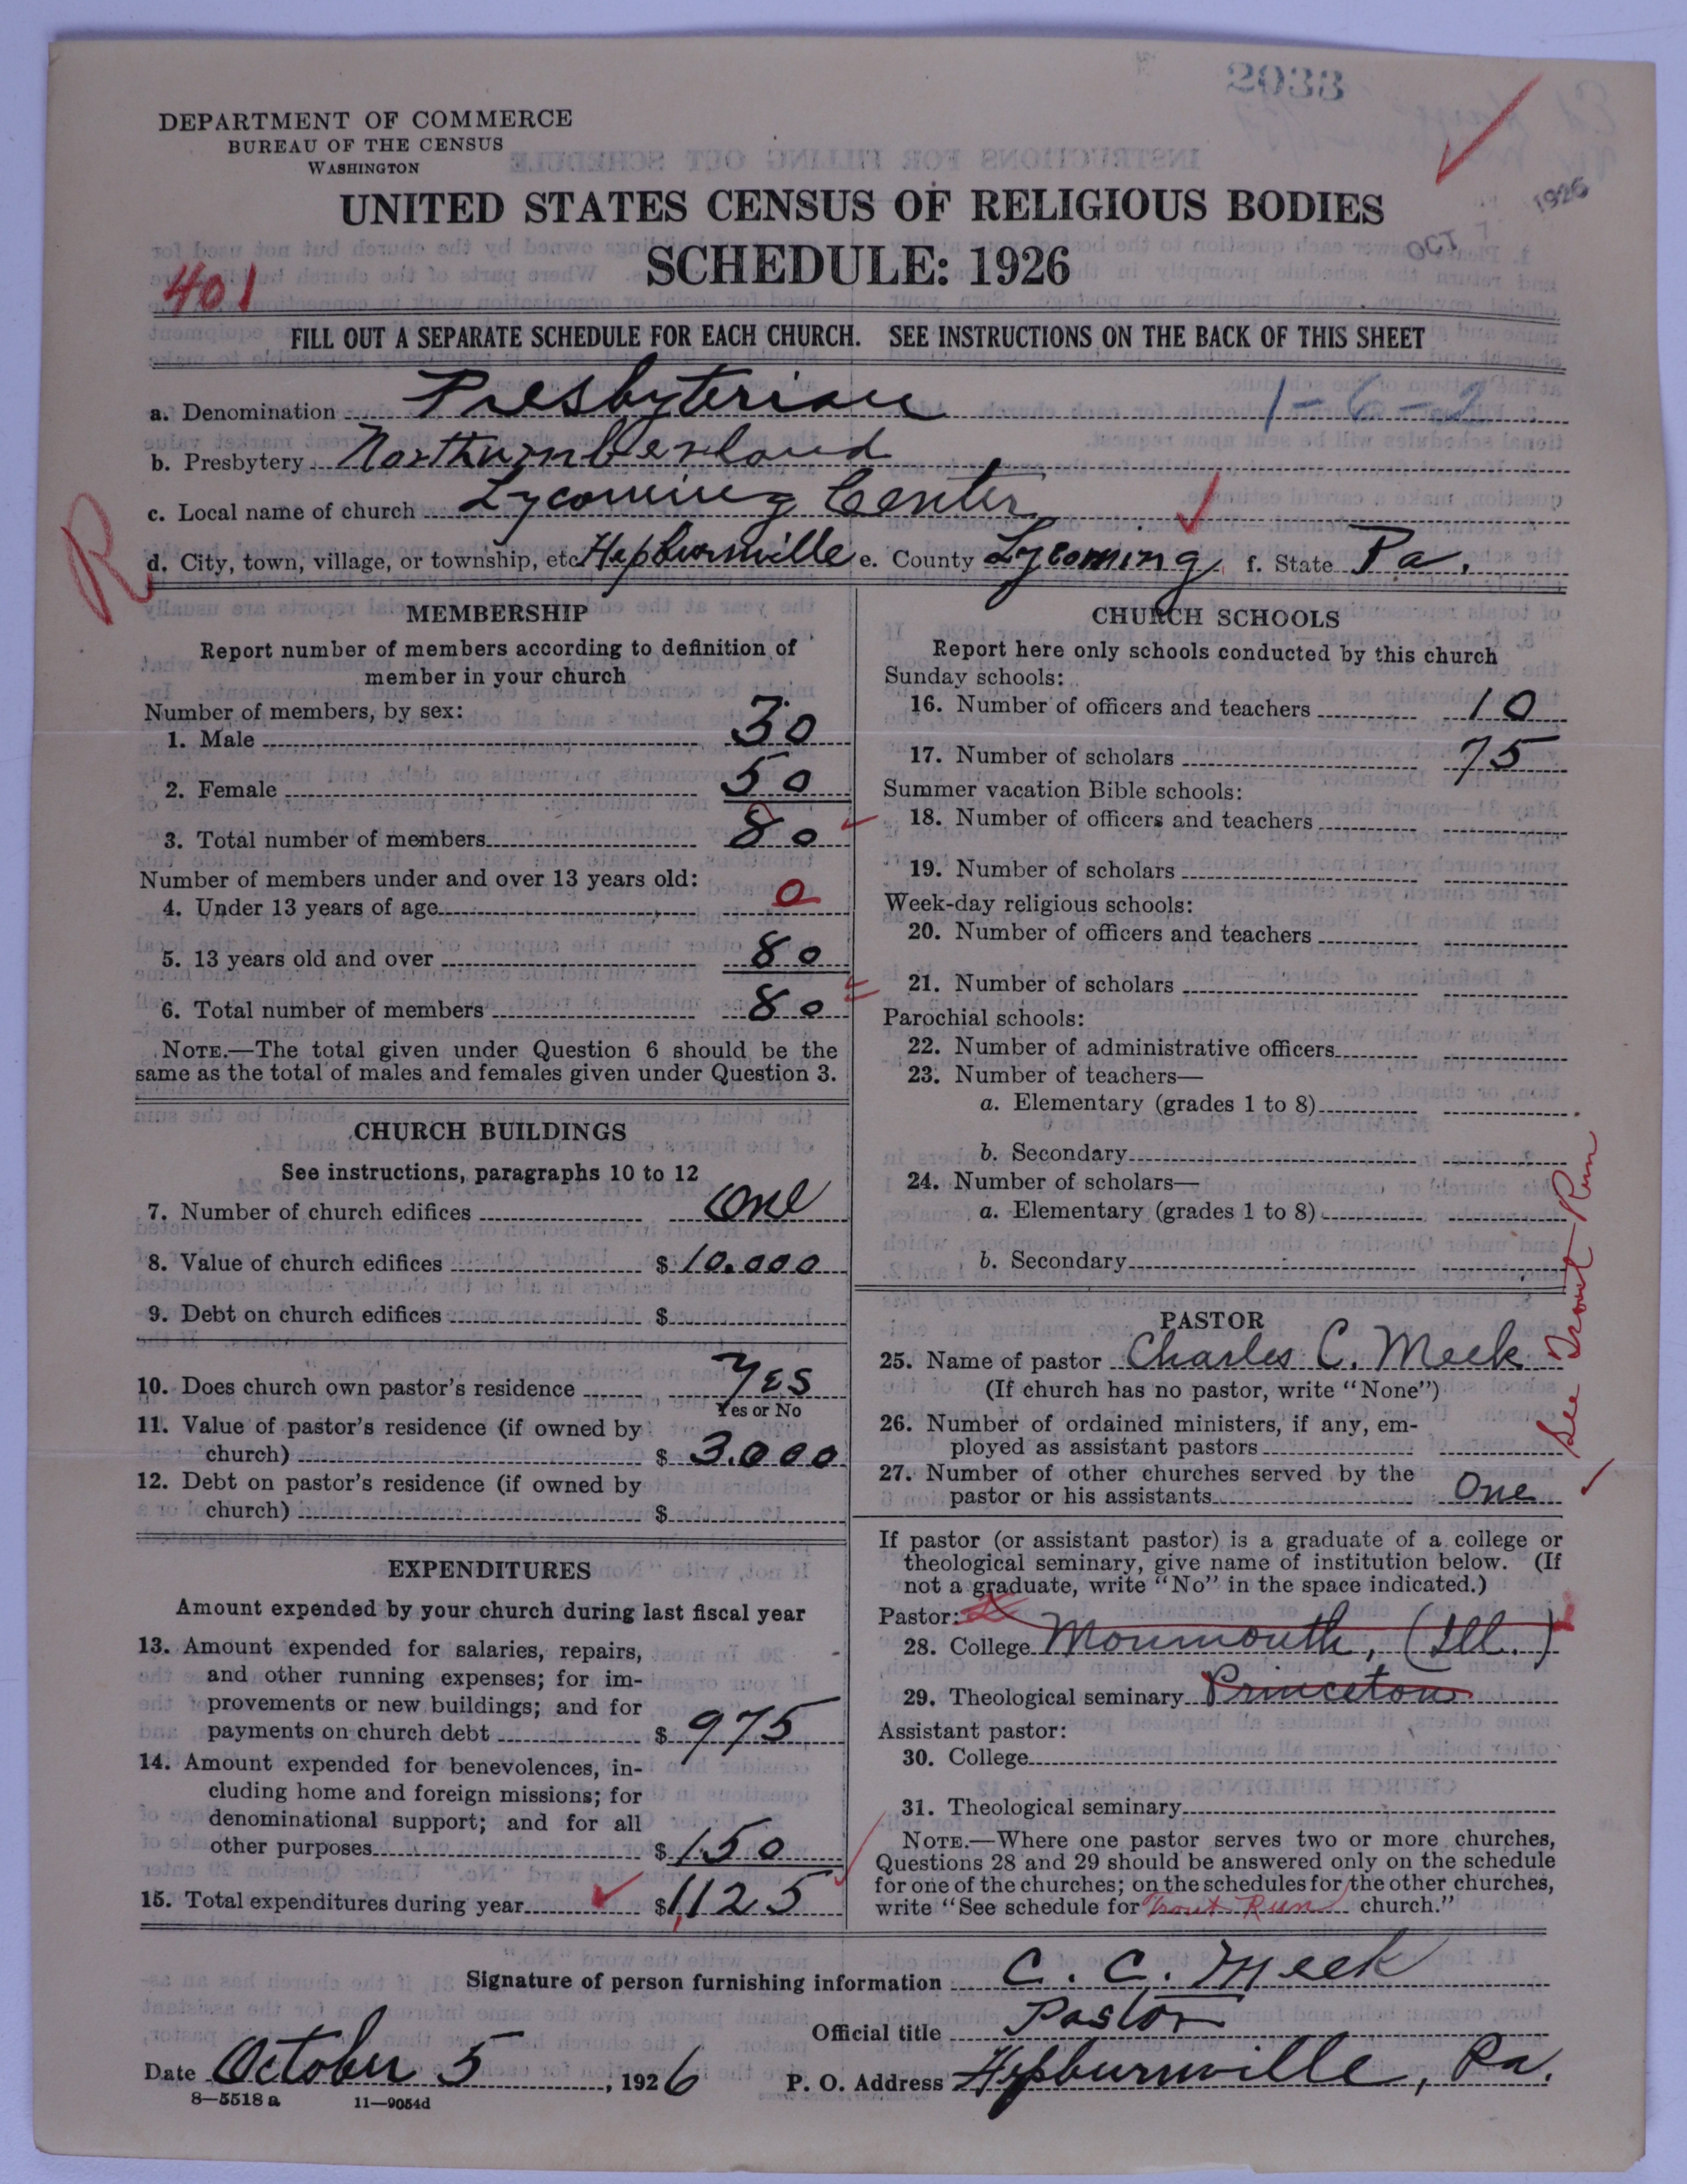 2033
DEPARTMENT OF COMMERCE
BUREAU OF THE CENSUS
WASHINGTON
1926
OCT 7
UNITED STATES CENSUS OF RELIGIOUS BODIES
SCHEDULE: 1926
401
FILL OUT A SEPARATE SCHEDULE FOR EACH CHURCH. SEE INSTRUCTIONS ON THE BACK OF THIS SHEET
a. Denomination Presbyterian 1-6-2
b. Presbytery Northumberland
c. Local name of church Lycoming Center
R
d. City, town, village, or township, etc Hepburnville e. County Lycoming f. State Pa.
MEMBERSHIP
Report number of members according to definition of
member in your church
Number of members, by sex:
1. Male 30
2. Female 50
3. Total number of members 80
Number of members under and over 13 years old:
4. Under 13 years of age 0
5. 13 years old and over 80
6. Total number of members 80
NOTE.—The total given under Question 6 should be the
same as the total of males and females given under Question 3.
CHURCH BUILDINGS
See instructions, paragraphs 10 to 12
7. Number of church edifices One
8. Value of church edifices $ 10.000
9. Debt on church edifices $
10. Does church own pastor's residence Yes
Yes or No
11. Value of pastor's residence (if owned by
church) $ 3.000
12. Debt on pastor's residence (if owned by
church) $
EXPENDITURES
Amount expended by your church during last fiscal year
13. Amount expended for salaries, repairs,
and other running expenses; for im-
provements or new buildings; and for
payments on church debt $ 975
14. Amount expended for benevolences, in-
cluding home and foreign missions; for
denominational support; and for all
other purposes $ 150
15. Total expenditures during year $ 1,125
CHURCH SCHOOLS
Report here only schools conducted by this church
Sunday schools:
16. Number of officers and teachers 10
17. Number of scholars 75
Summer vacation Bible schools:
18. Number of officers and teachers
19. Number of scholars
Week-day religious schools:
20. Number of officers and teachers
21. Number of scholars
Parochial schools:
22. Number of administrative officers
23. Number of teachers—
a. Elementary (grades 1 to 8)
b. Secondary
24. Number of scholars—
a. Elementary (grades 1 to 8)
b. Secondary
See Trout Run
PASTOR
25. Name of pastor Charles C. Meek
(If church has no pastor, write "None")
26. Number of ordained ministers, if any, em-
ployed as assistant pastors
27. Number of other churches served by the
pastor or his assistants One
If pastor (or assistant pastor) is a graduate of a college or
theological seminary, give name of institution below. (If
not a graduate, write "No" in the space indicated.)
Pastor:
28. College Monmouth, (Ill.)
29. Theological seminary Princeton
Assistant pastor:
30. College
31. Theological seminary
NOTE.—Where one pastor serves two or more churches,
Questions 28 and 29 should be answered only on the schedule
for one of the churches; on the schedules for the other churches,
write "See schedule for Trout Run church."
Signature of person furnishing information C. C. Meek
Official title Pastor
Date October 5, 1926 P. O. Address Hepburnville, Pa.
8—5518 a 11—9054d